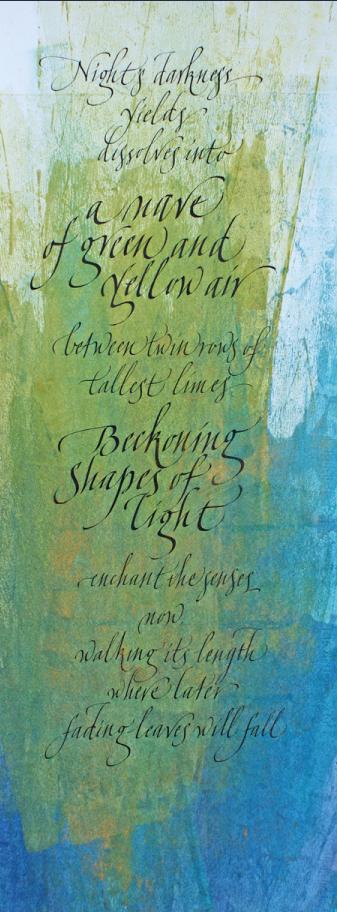 Night's darkness
yields
dissolves into
a nave
of green and
yellow air
between twin rows of
tallest limes
Beckoning
shapes of
light
enchant the senses
now
walking its length
where later
fading leaves will fall